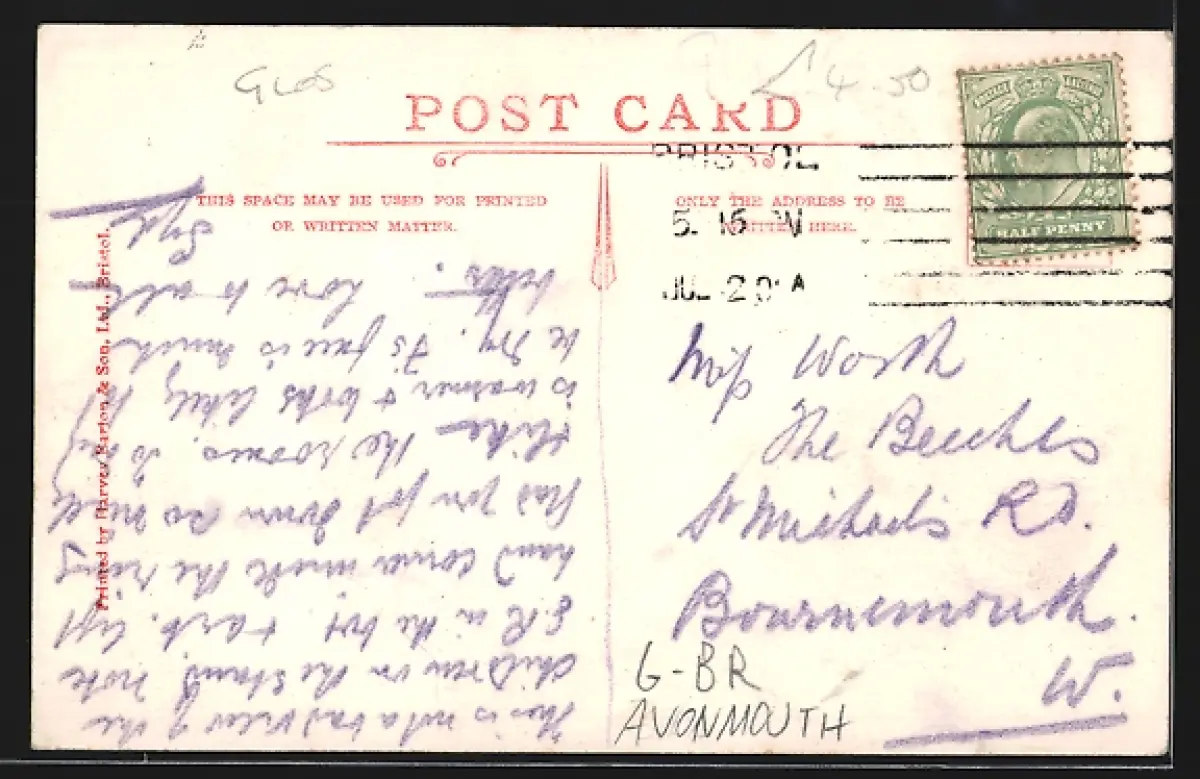 GLOS
£4.50
POST CARD
THIS SPACE MAY BE USED FOR PRINTED
OR WRITTEN MATTER.
ONLY THE ADDRESS TO BE
WRITTEN HERE.
BRISTOL
5. 15 
JUL 20
HALF PENNY
Printed by Harvey Barton & Son, Ltd., Bristol.
This is not a bad view of the
children on the stand, note
E.R. in the
hand corner made the
you got down so
the rooms. To day
is warmer & looks likely to
be dry. is much
better. Love to all
Miss Worth
The Beeches
St Michaels Rd.
Bournemouth.
W.
G-BR
AVONMOUTH